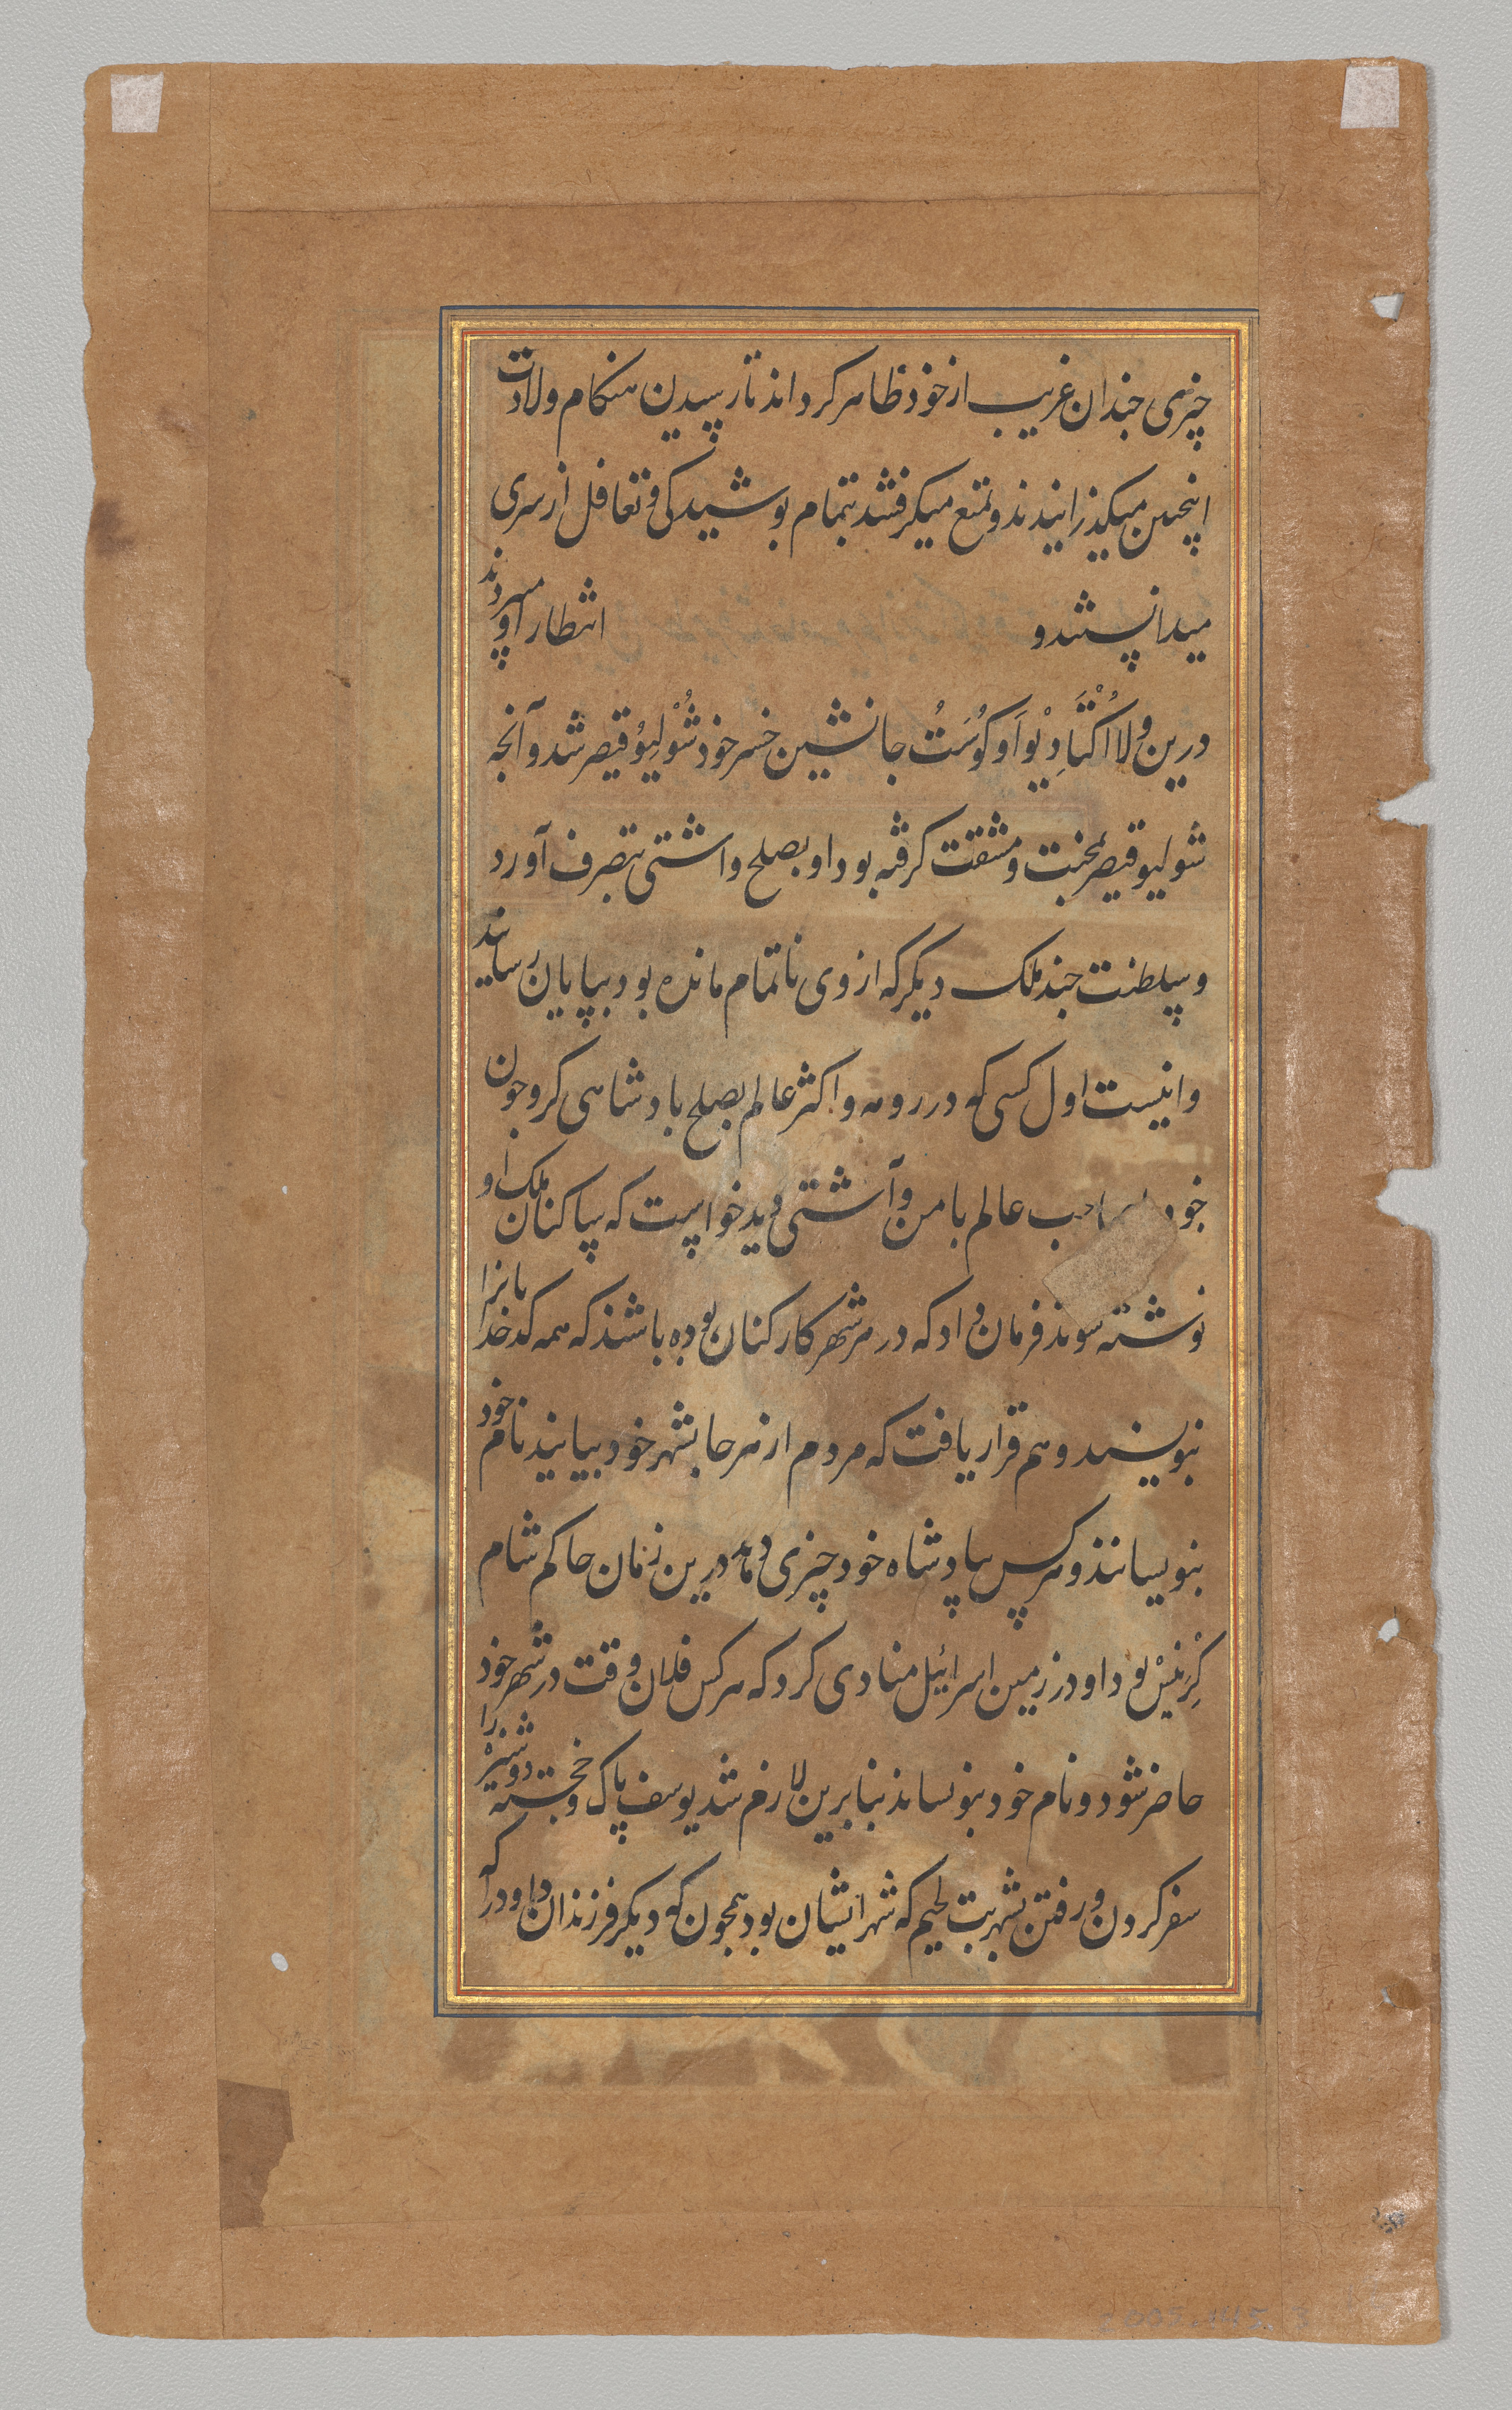 چیزی چندان غریب از خود ظاهر کرداند تا رسیدن هنکام ولادت
اینچنین میکذرانیدند و تمتع میکرفتند بتمام پوشیدکی و تغافل از سری
میدانستند و انتظار او میبردند
درین ولا اُکْتَاوِیْو اَوکُوسَتُ جانشین خسر خود شُوْلِیوُ قیصر شد و آنچه
شولیو قیصر بمحنت و مشقت کرفته بود او بصلح و اشتی بتصرف آورد
و سلطنت چند ملک دیکر که از وی ناتمام مانده بود بپایان رسانید
و اینست اول کسی که در رومه و اکثر عالم بصلح بادشاهی کرد و چون
خود صاحب عالم بامن و آشتی دید خواست که ساکنان ملک او
نوشته شوند فرمان داد که در هر شهر کارکنان بوده باشند که همه کدخدایانرا
بنویسند و هم قرار یافت که مردم از هر جا بشهر خود بیایند نام خود
بنویسانند و هر کس بپادشاه خود چیزی دهد درین زمان حاکم شام
کِرِنِیْسْ بود او در زمین اسرائیل منادی کرد که هر کس فلان وقت در شهر خود
حاضر شود و نام خود بنویساند بنابرین لازم شد یوسف پاک و خجسته دوشیزه را
سفر کردن و رفتن بشهر بیت لحیم که شهر ایشان بود همچون که دیکر فرزندان داود را که